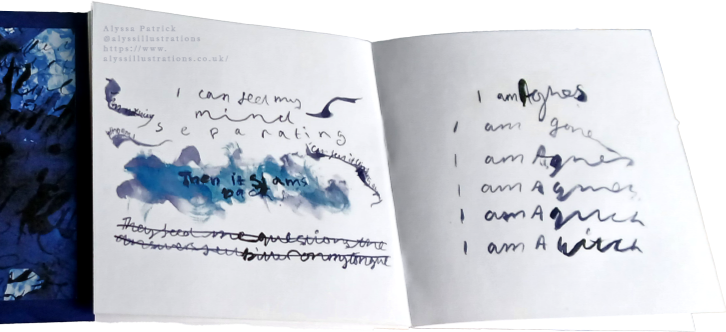 Alyssa Patrick
@alyssillustrations
https://www.
alyssillustrations.co.uk/
I can feel my
mind
separating
Then it slams
back
They feed me questions the
answers feel bitter on my tongue
I am Agnes
I am gone
I am Agnes
I am Agnes
I am A
I am A witch